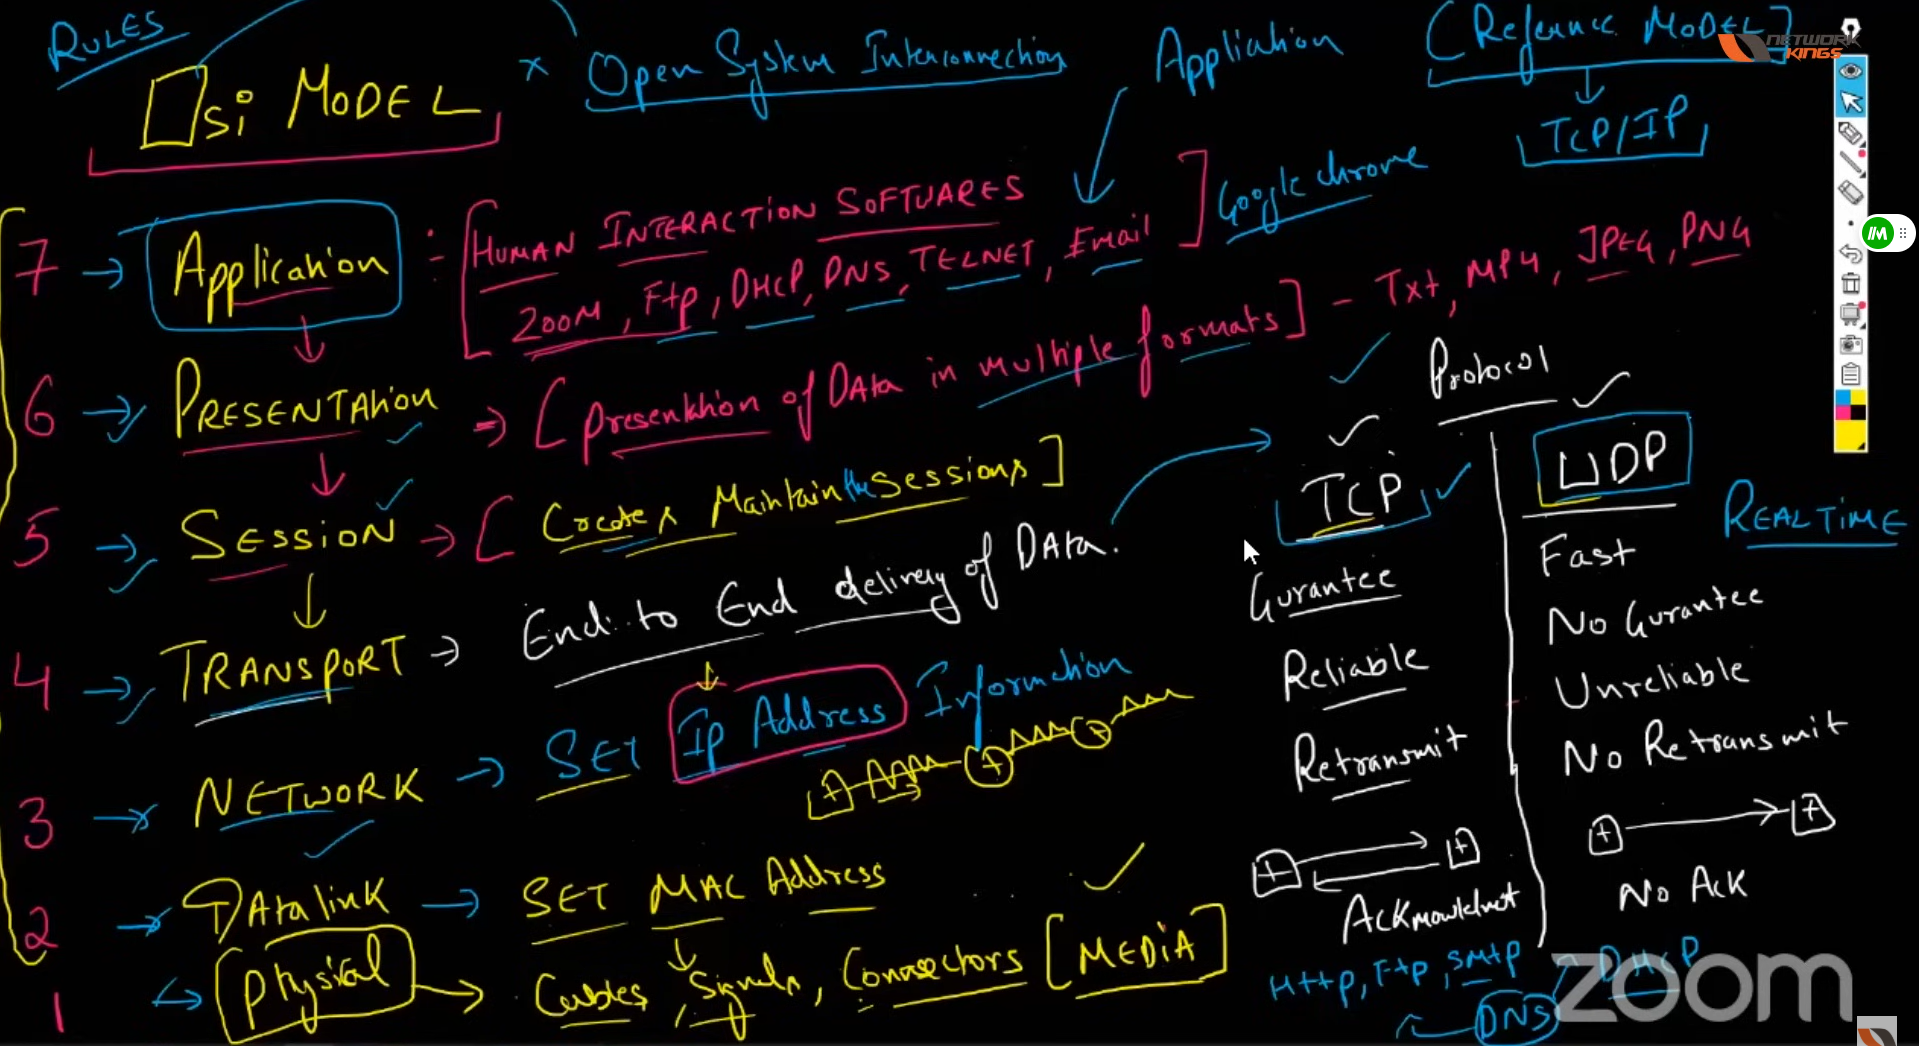 RULES
OSi MODEL
x Open System Interconnection
Application
[Reference MODEL]
NETWORK KINGS
TCP/IP
7 → Application :- [HUMAN INTERACTION SOFTWARES
ZOOM, Ftp, DHCP, DNS, TELNET, Email] Google chrome
6 → PRESENTAtion → [presentation of DAta in multiple formats] - Txt, MP4, JPEG, PNG
5 → SESSiON → [Create & Maintain the sessions]
4 → TRANSPORT → End to End delivery of DAta.
3 → NETWORK → SET Ip Address Information
2 → DAtalink → SET MAC Address
1 → Physical → Cables, Signals, Connectors [MEDiA]
Protocol
TCP
Gurantee
Reliable
Retransmit
Http, Ftp, SMtp
UDP
REALTIME
Fast
No Gurantee
Unreliable
No Retransmit
No Ack
DHCP
DNS
zoom